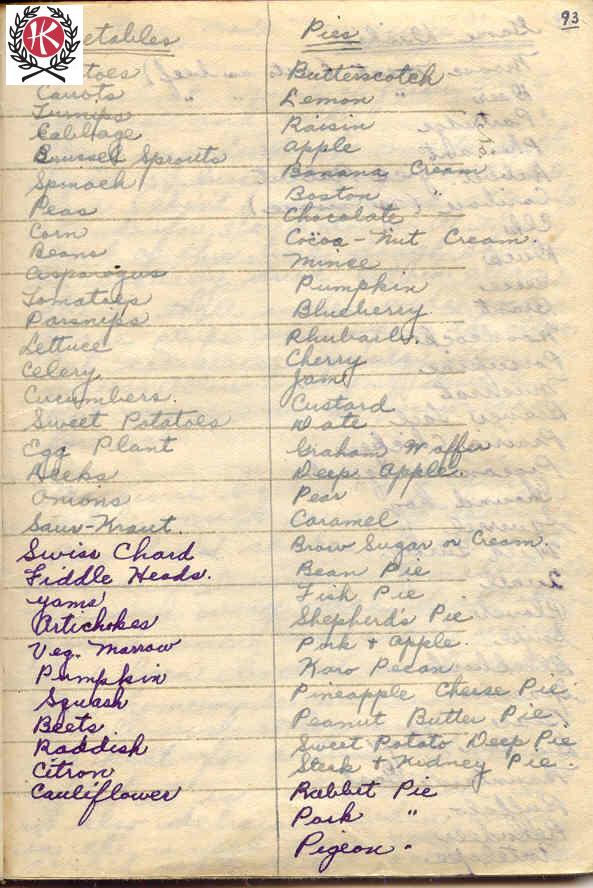 93
etables
toes
Carrots
Turnips
Cabbage
Brussel Sprouts
Spinach
Peas
Corn
Beans
Asparagus
Tomatoes
Parsnips
Lettuce
Celery
Cucumbers.
Sweet Potatoes
Egg Plant
Leeks
Onions
Saur-Kraut.
Swiss Chard
Fiddle Heads.
Yams
Artichokes
Veg. Marrow
Pumpkin
Squash
Beets
Raddish
Citron
Cauliflower
Pies
Butterscotch
Lemon "
Raisin
Apple
Banana Cream
Boston "
Chocolate
Cocoa-Nut Cream.
Mince
Pumpkin
Blueberry.
Rhubarb.
Cherry
Jam
Custard
Date
Graham Waffer
Deep Apple.
Pear
Caramel
Brow Sugar or Cream.
Bean Pie
Fish Pie
Shepherd's Pie
Pork + Apple.
Karo Pecan
Pineapple Cheese Pie.
Peanut Butter Pie
Sweet Potato Deep Pie
Steak + Kidney Pie.
Rabbit Pie
Pork "
Pigeon "
HK